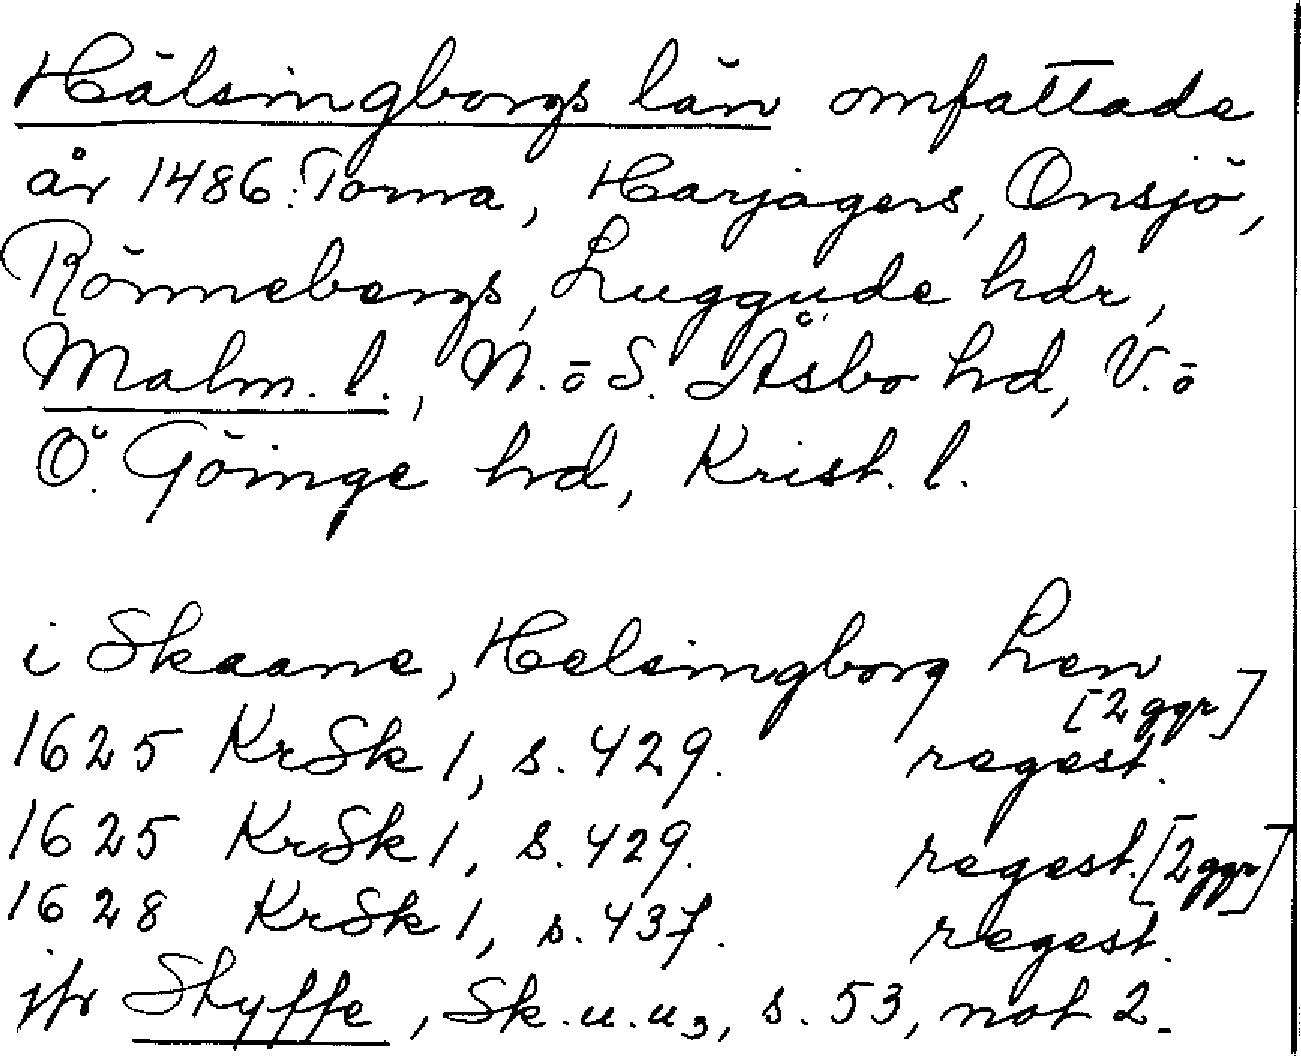 Hälsingborgs län omfattade
år 1486: Torna, Harjagers, Onsjö,
Rönnebergs, Luggude hdr,
Malm. l., N. o S. Åsbo hd, V. o
Ö. Göinge hd, Krist. l.
i Skaane, Helsingborg Len
1625 KrSk 1, s. 429. regest. [2 ggr]
1625 KrSk 1, s. 429. regest. [2 ggr]
1628 KrSk 1, s. 437. regest.
jfr Skyffe, Sk. u. u3, s. 53, not 2.